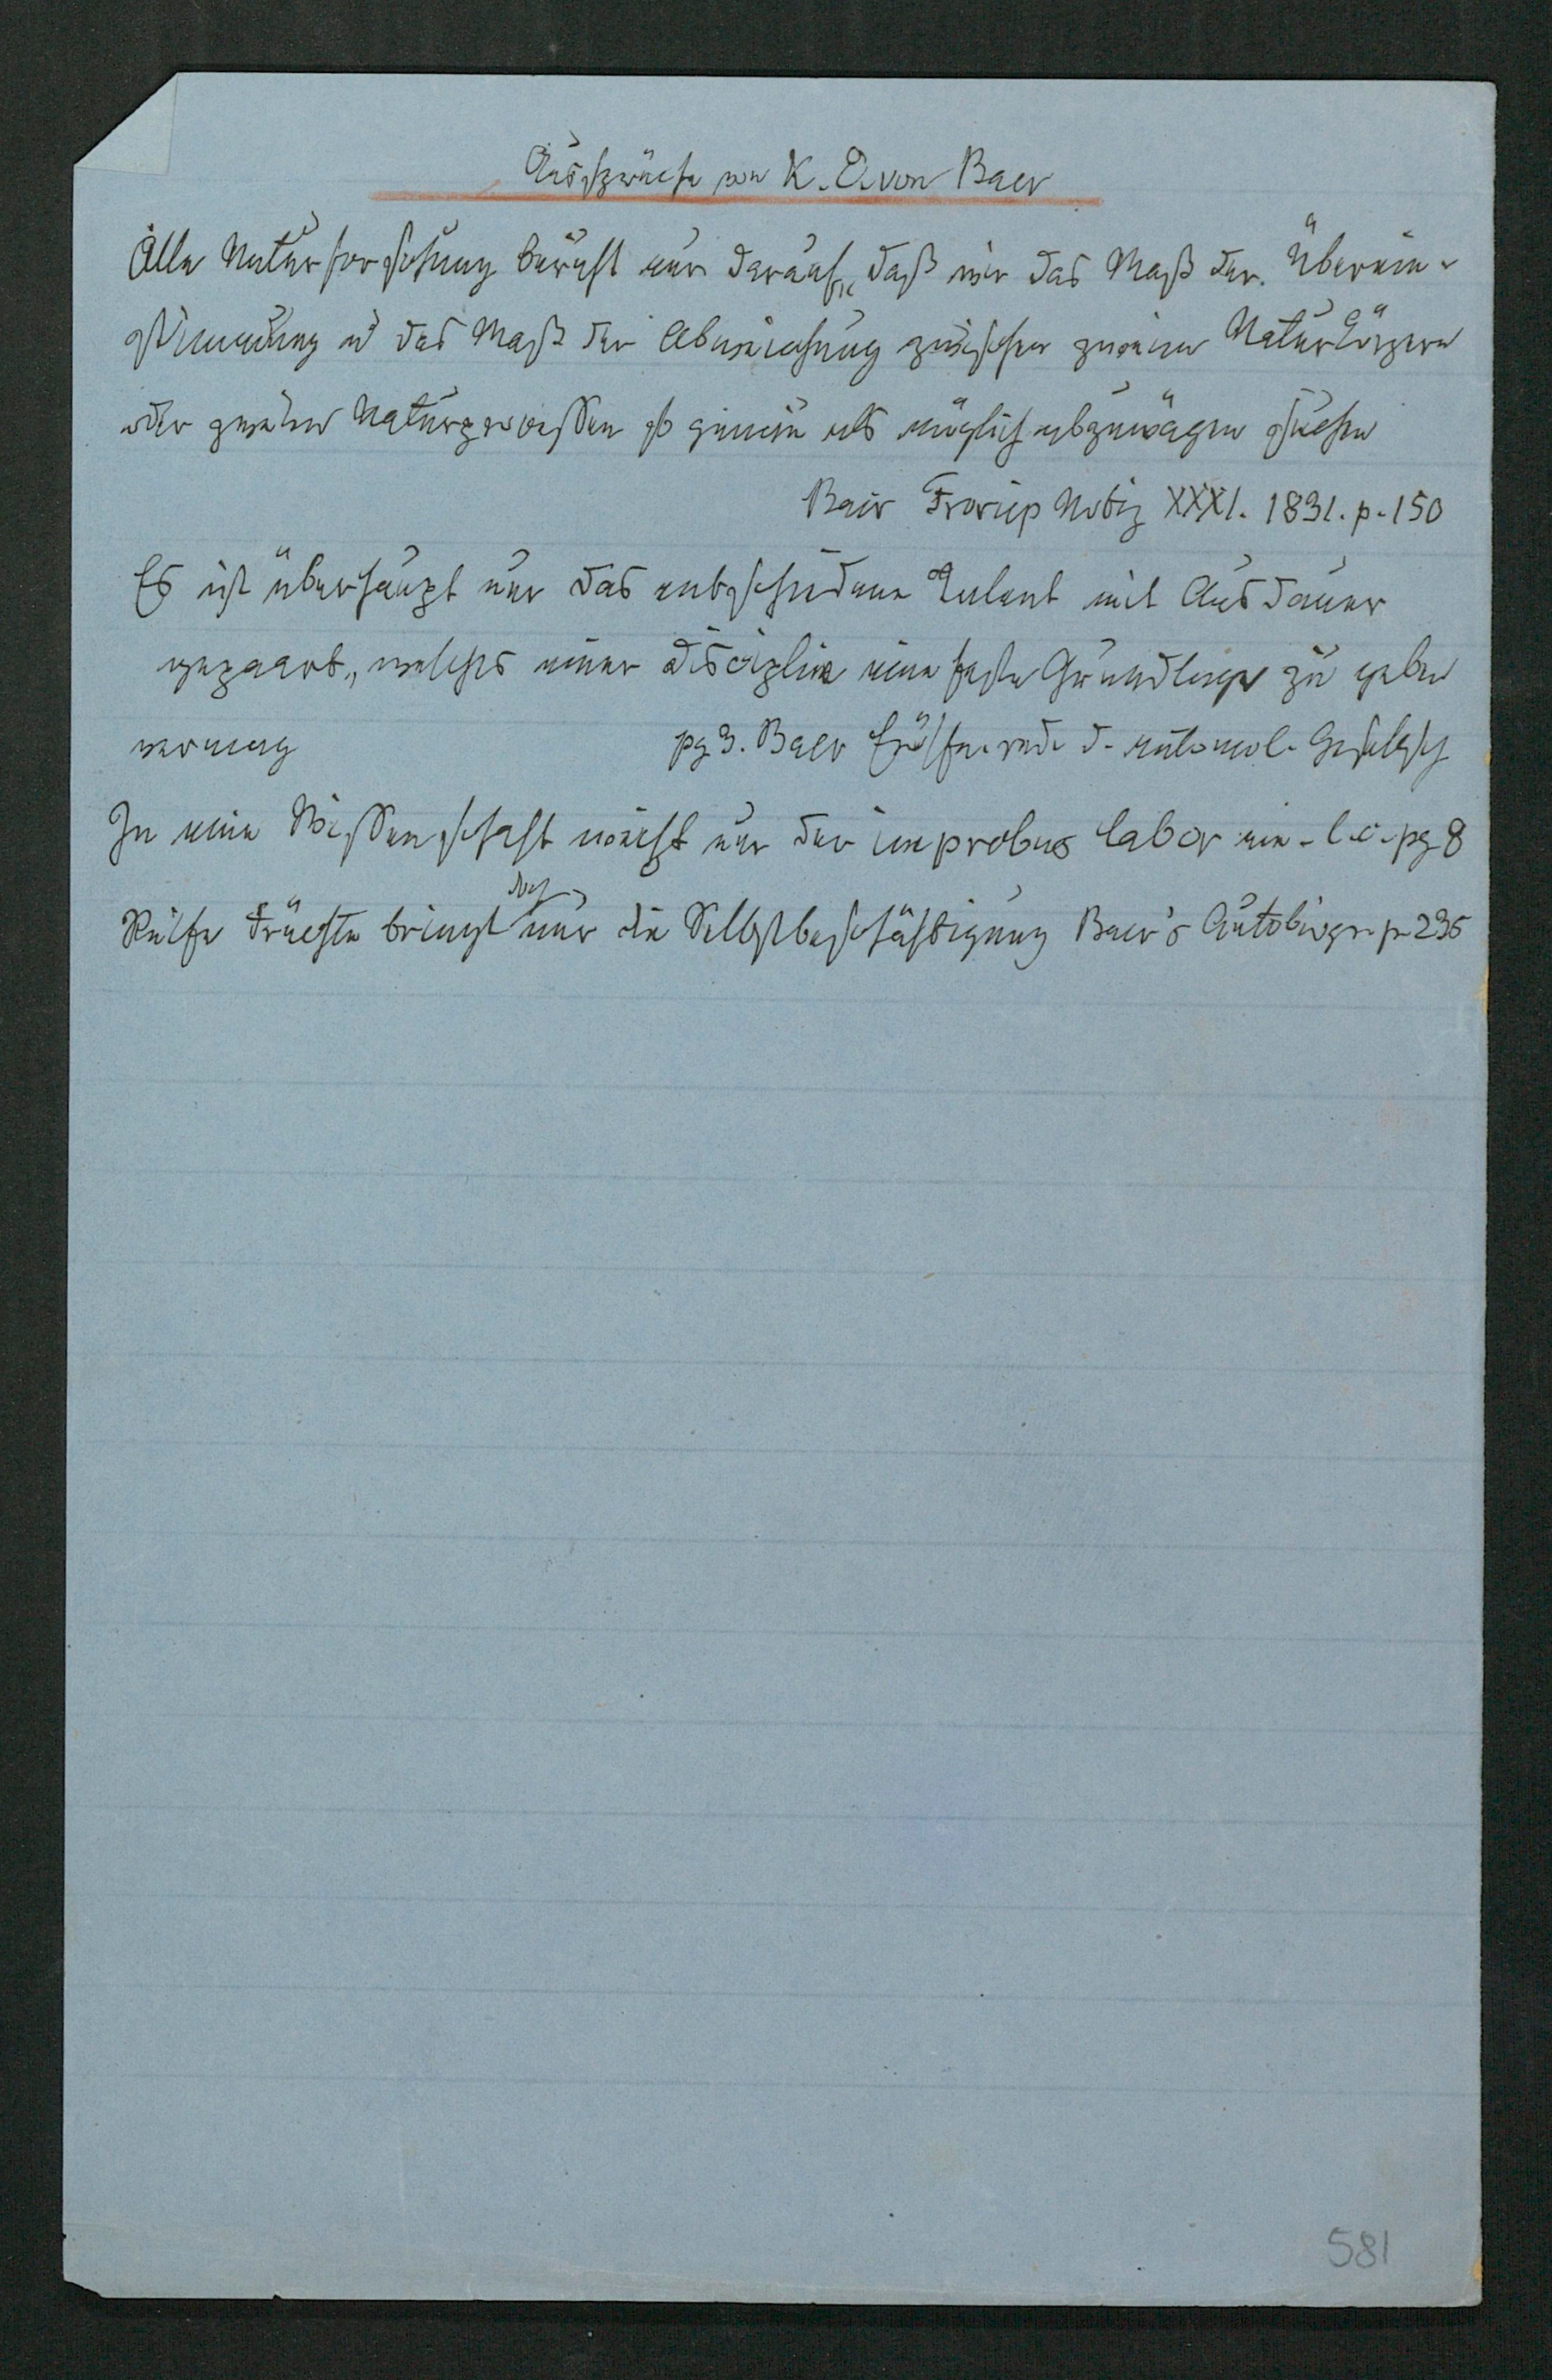 Aussprüche von K. E. von Baer
Alle Naturforschung beruht nur darauf, daß wir das Maß der Überein-
stimmung u das Maß der Abweichung zwischen zweien Naturkörpern
oder zweier Naturprocessen so genau als möglich abzuwägen suchen
Baer Froriep Notiz XXXI. 1831. p. 150
Es ist überhaupt nur das entschiedene Talent mit Ausdauer
gepaart, welches einer Disciplin eine feste Grundlage zu geben
vermag pg 3. Baer Eröffn. rede d. entomol. Gesellsch
In eine Wissenschaft weiht nur der improbus labor ein. l. c. pg 8
Reife Früchte bringt doch nur die Selbstbeschäftigung Baer's Autobiogr. p 235
581